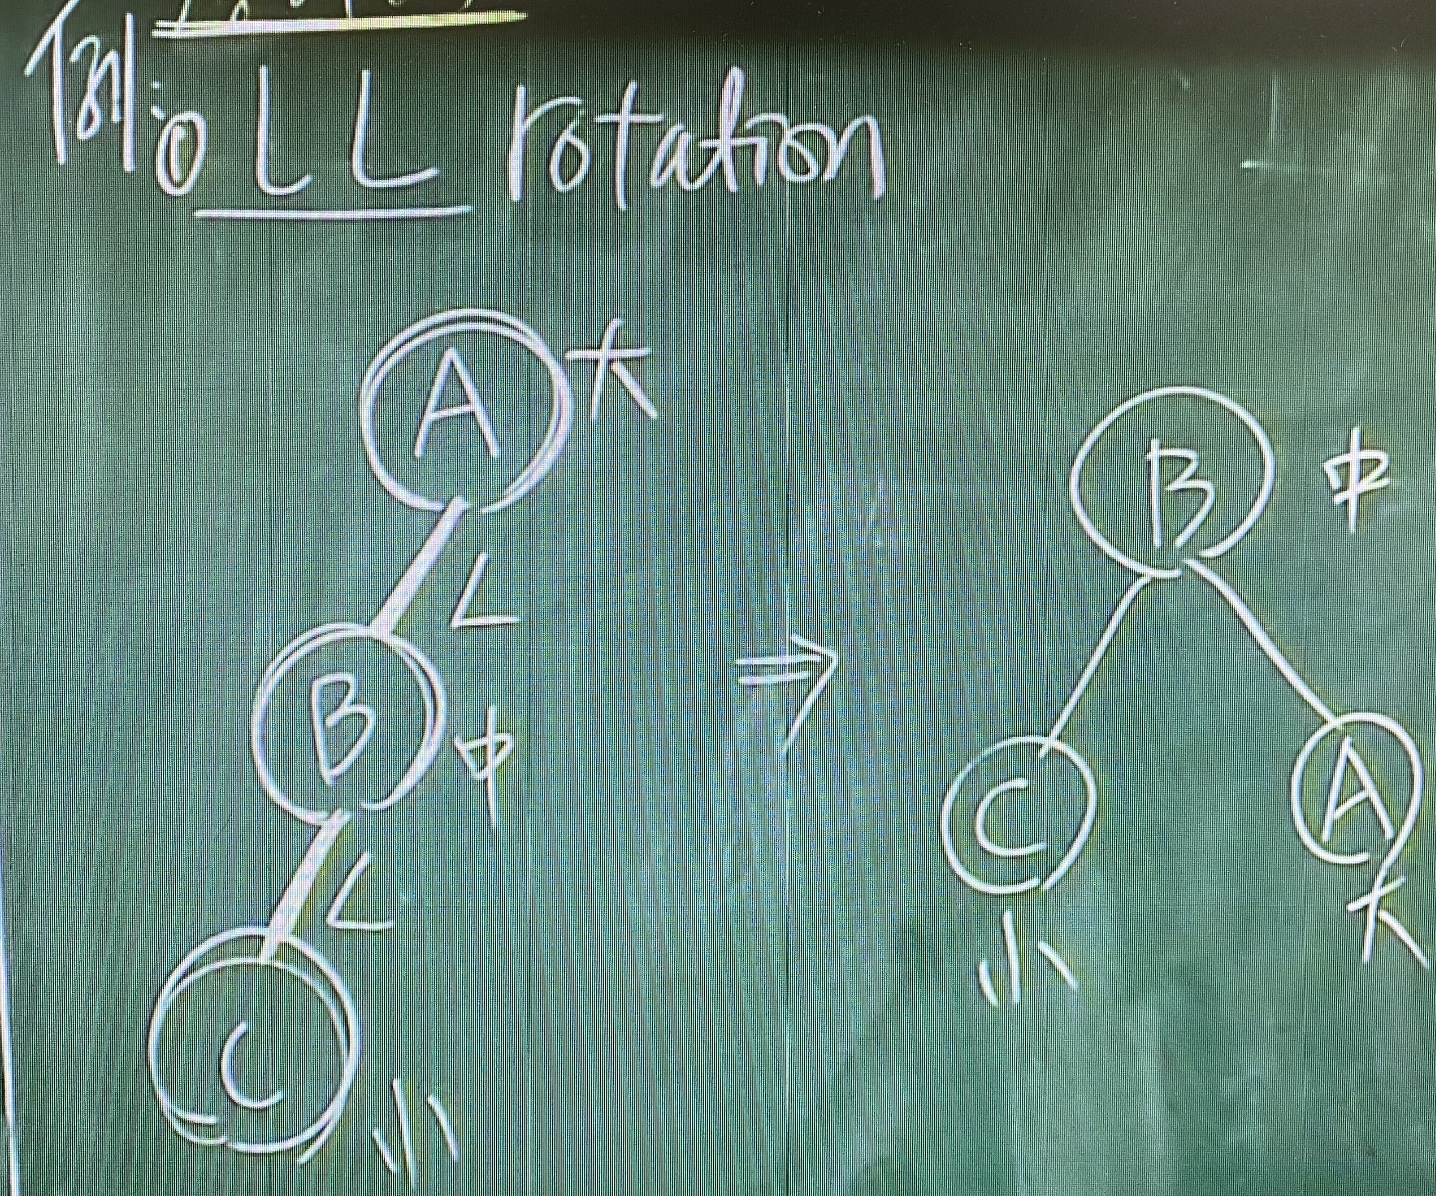 例:① LL rotation
A 大
L
B 中
L
C 小
⇒
B 中
C A
小 大